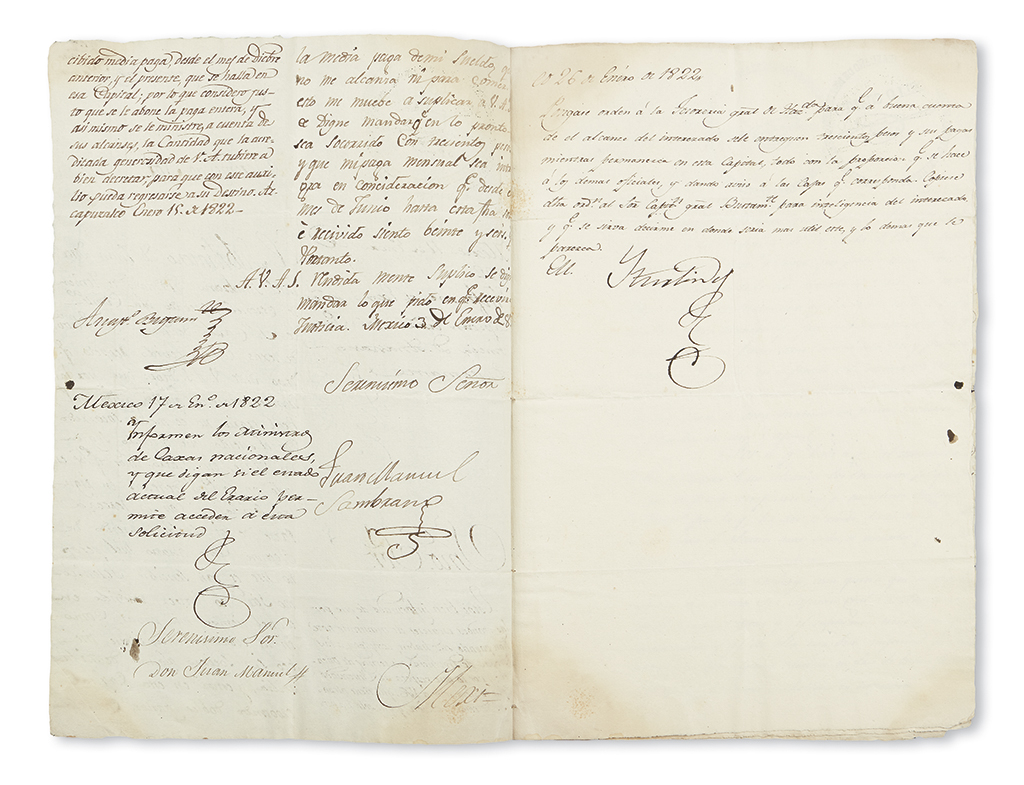 cibido media paga, desde el mes de Diciẽbre
anterior, y el presente, que se halla en
esa Capital; por lo que considero jus-
to que se le abone la paga entera, y
asi mismo se le ministre, a cuenta de
sus alcanses, la Cantidad que la acre-
dicada generocidad de V. A. tubiere a
bien decretar, para que con este auxi-
lio pueda regresarse a su Destino. At-
capuzalco Enero 15. de 1822
Anast.º
Mexico 17 de En.º de 1822
Informen los Ministros
de Caxas nacionales,
y que digan si el estado
actual del Erario per-
mite acceder á esta
solicitud
Serenisimo Sor.
Don Juan Manuel
la media paga de mi Sueldo, q
no me alcansa ni para comer
esto me muebe a suplicar a V. A.
se Digne mandar q.e en lo pronto
sea Socorrido Con trecientos pesos
y que mi paga mensual sea inte
gra en consideracion q.e desde el
mes de Junio hasta esta fha
é recivido siento beinte y seis p.
A. V. A. S. Rendida mente Suplico se dig
mandar lo que pido en q.e recivire
Justicia. Mexico 3 de Enero de 8
Serenisimo Señor
Juan Manuel
Sambrano
Mexi
26 de Enero de 1822,
Pongase orden á la Tesoreria gral de Hac.da para q.e á buena cuenta
de el alcance del interezado se le entreguen trecientos pesos y sus pagas
mientras permanesca en esta Capital, todo con la proporcion q.e se hace
á los demas oficiales, y dando aviso á las Cajas q.e corresponda. Copiese
esta ord.n al Sor Cap.n gral Bustam.te para inteligencia del interezado,
y q.e se sirva decirme en donde seria mas util este, y lo demas que le
paresca
Iturbide